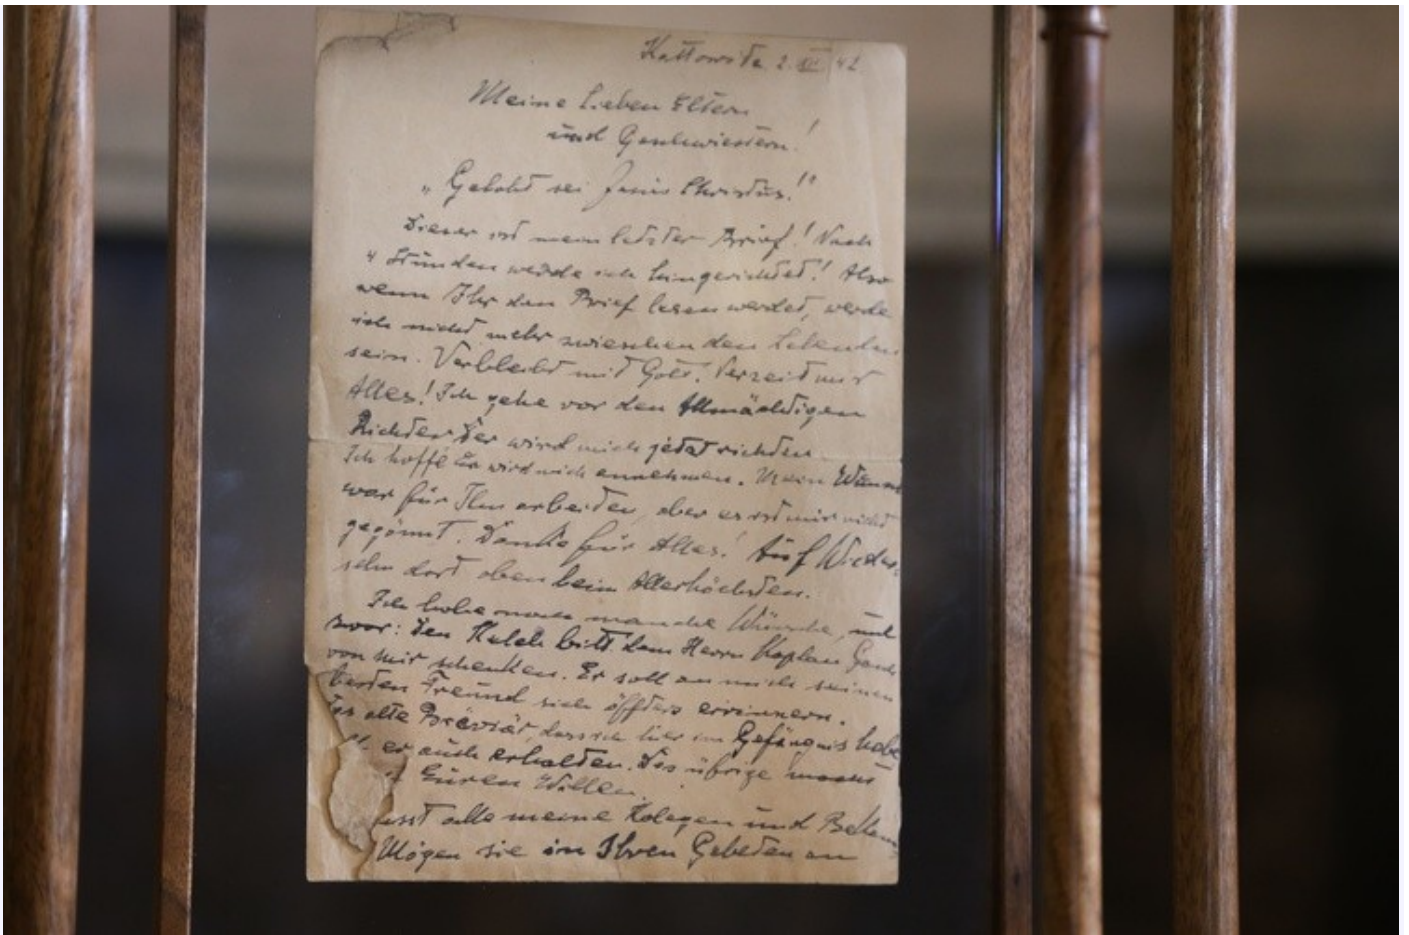 Kattowitz 2. XII 42
Meine lieben Eltern
und Geschwistern!
„Gelobt sei Jesus Christus!"
Dieser ist mein letzter Brief! Nach
4 Stunden werde ich hingerichtet! Also
wenn Ihr den Brief lesen werdet, werde
ich nicht mehr zwieschen den Lebenden
sein. Verbleibt mit Gott. Verzeit mir
Alles! Ich gehe vor den Allmächtigen
Richter der wird mich jetzt richten
Ich hoffe Er wird mich annehmen. Mein Wunsch
war für Ihn arbeiten, aber es ist mir nicht
gegönnt. Danke für Alles! Auf Wieder-
sehn dort oben beim Allerhöchsten.
Ich habe noch manche Wünsche, und
zwar: Den Kelch bitt. dem Herrn Kaplan
von mir schenken. Er soll an mich seinen
besten Freund sich öffters errinnern.
Das alte Breviär, dass ich hier im Gefängnis habe
er auch erhalten. Das übrige
Euren Willen.
alle meine Kolegen und
Mögen sie in Ihren Gebeten an